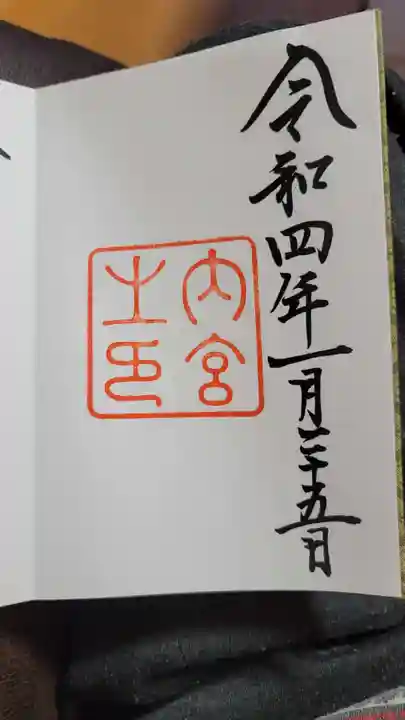 令和四年一月二十五日
内宮
之印